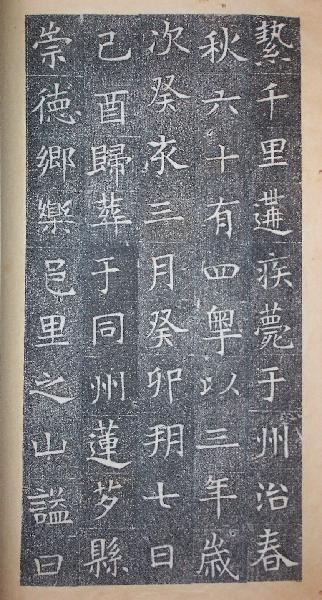 縶千里遘疾薨于州治春
秋六十有四粤以三年歲
次癸亥三月癸卯朔七日
己酉歸葬于同州蓮芍縣
崇德鄉樂邑里之山謚曰